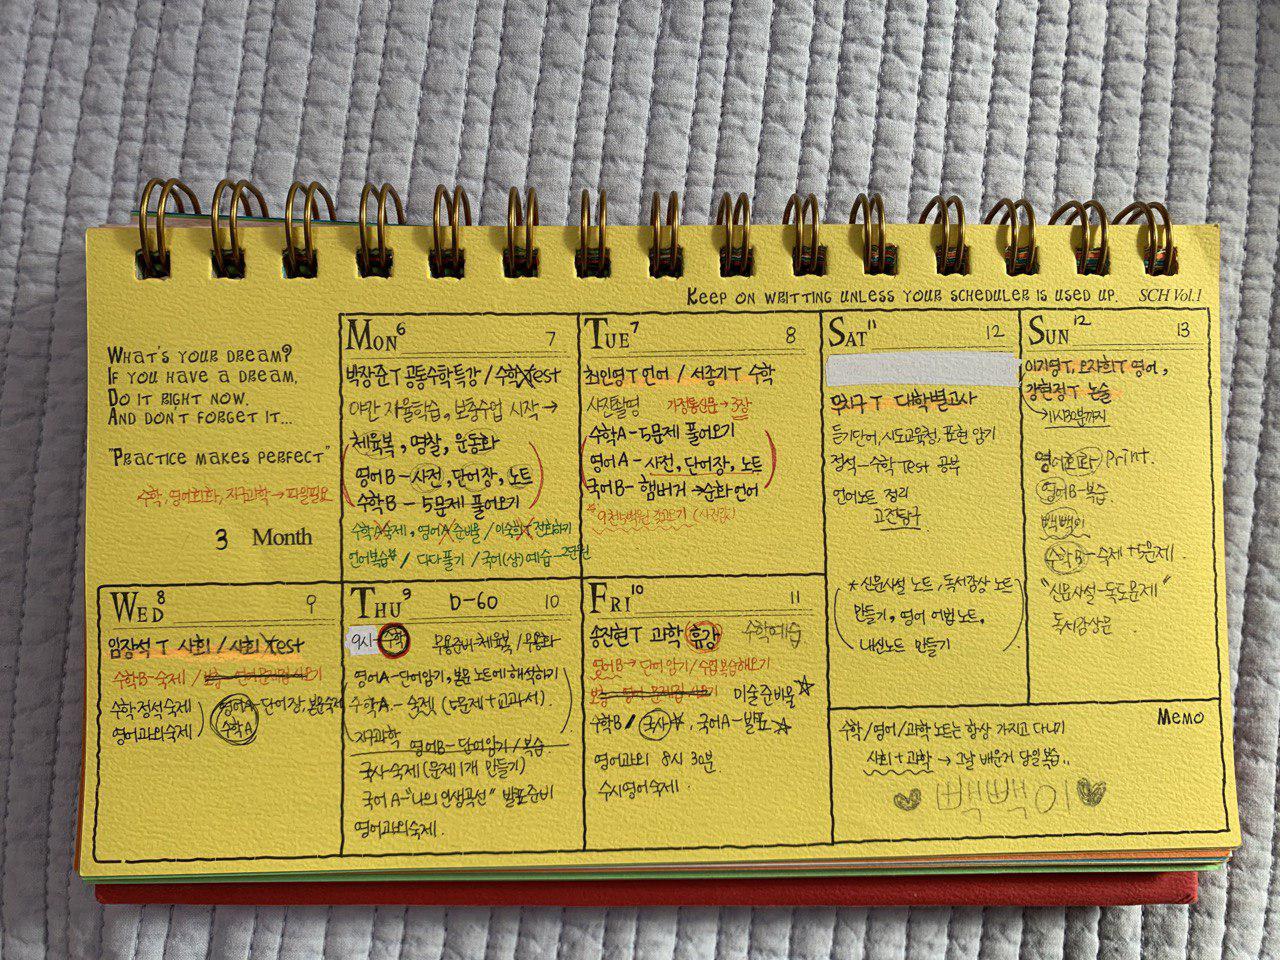 KEEP ON WRITTING UNLESS YOUR SCHEDULER IS USED UP. SCH Vol.1
WHAT'S YOUR DREAM?
IF YOU HAVE A DREAM,
DO IT RIGHT NOW.
AND DON'T FORGET IT...
"PRACTICE MAKES PERFECT"
수학, 영어회화, 지구과학 → 파일필요
3 Month
MON 6 7
박장준T 공통수학특강 / 수학 test
야간 자율학습, 보충수업 시작 →
체육복, 명찰, 운동화
영어B - 사전, 단어장, 노트
수학B - 5문제 풀어오기
수학A숙제, 영어A 준비물 / 전화하기
언어복습 / 다다풀기 / 국어(상) 예습 - 2단원
TUE 7 8
최인영T 언어 / 서종기T 수학
사진촬영 가정통신문 → 3장
수학A - 5문제 풀어오기
영어A - 사전, 단어장, 노트
국어B - 햄버거 → 순화 언어
SAT 11 12
T 대학별고사
듣기단어, 시도교육청, 표현 암기
정석 - 수학 Test 공부
언어노트 정리
고전탐구
* 신문사설 노트, 독서감상 노트
만들기, 영어 어법 노트,
내신노트 만들기
SUN 12 13
이지영T, 오자희T 영어,
강현정T 논술
→ 11시50분까지
영어회화 Print.
영어B - 복습.
백백이
수학B - 숙제 + 5문제.
"신문사설 - 독도문제"
독서감상문
WED 8 9
임장석T 사회 / 사회 test
수학B - 숙제 /
수학정석숙제
영어과외숙제
영어A 단어장, 본문숙제
수학A
THU 9 D-60 10
9시 - 수학 무용준비 - 체육복 / 무용화
영어A - 단어암기, 본문 노트에 해석하기
수학A - 숙제 (5문제 + 교과서).
지구과학
영어B - 단어암기 / 복습
국사 숙제 (문제 1개 만들기)
국어A - "나의 인생곡선" 발표준비
영어과외숙제.
FRI 10 11
송진현T 과학 휴강 수학예습
영어B → 단어암기 / 수업복습해오기
미술준비물☆
수학B / 국사☆, 국어A - 발표☆
영어과외 8시 30분.
수시영어숙제.
MEMO
수학/영어/과학 노트는 항상 가지고 다니기
사회 + 과학 → 그날 배운거 당일 복습..
♥ 백백이 ♥